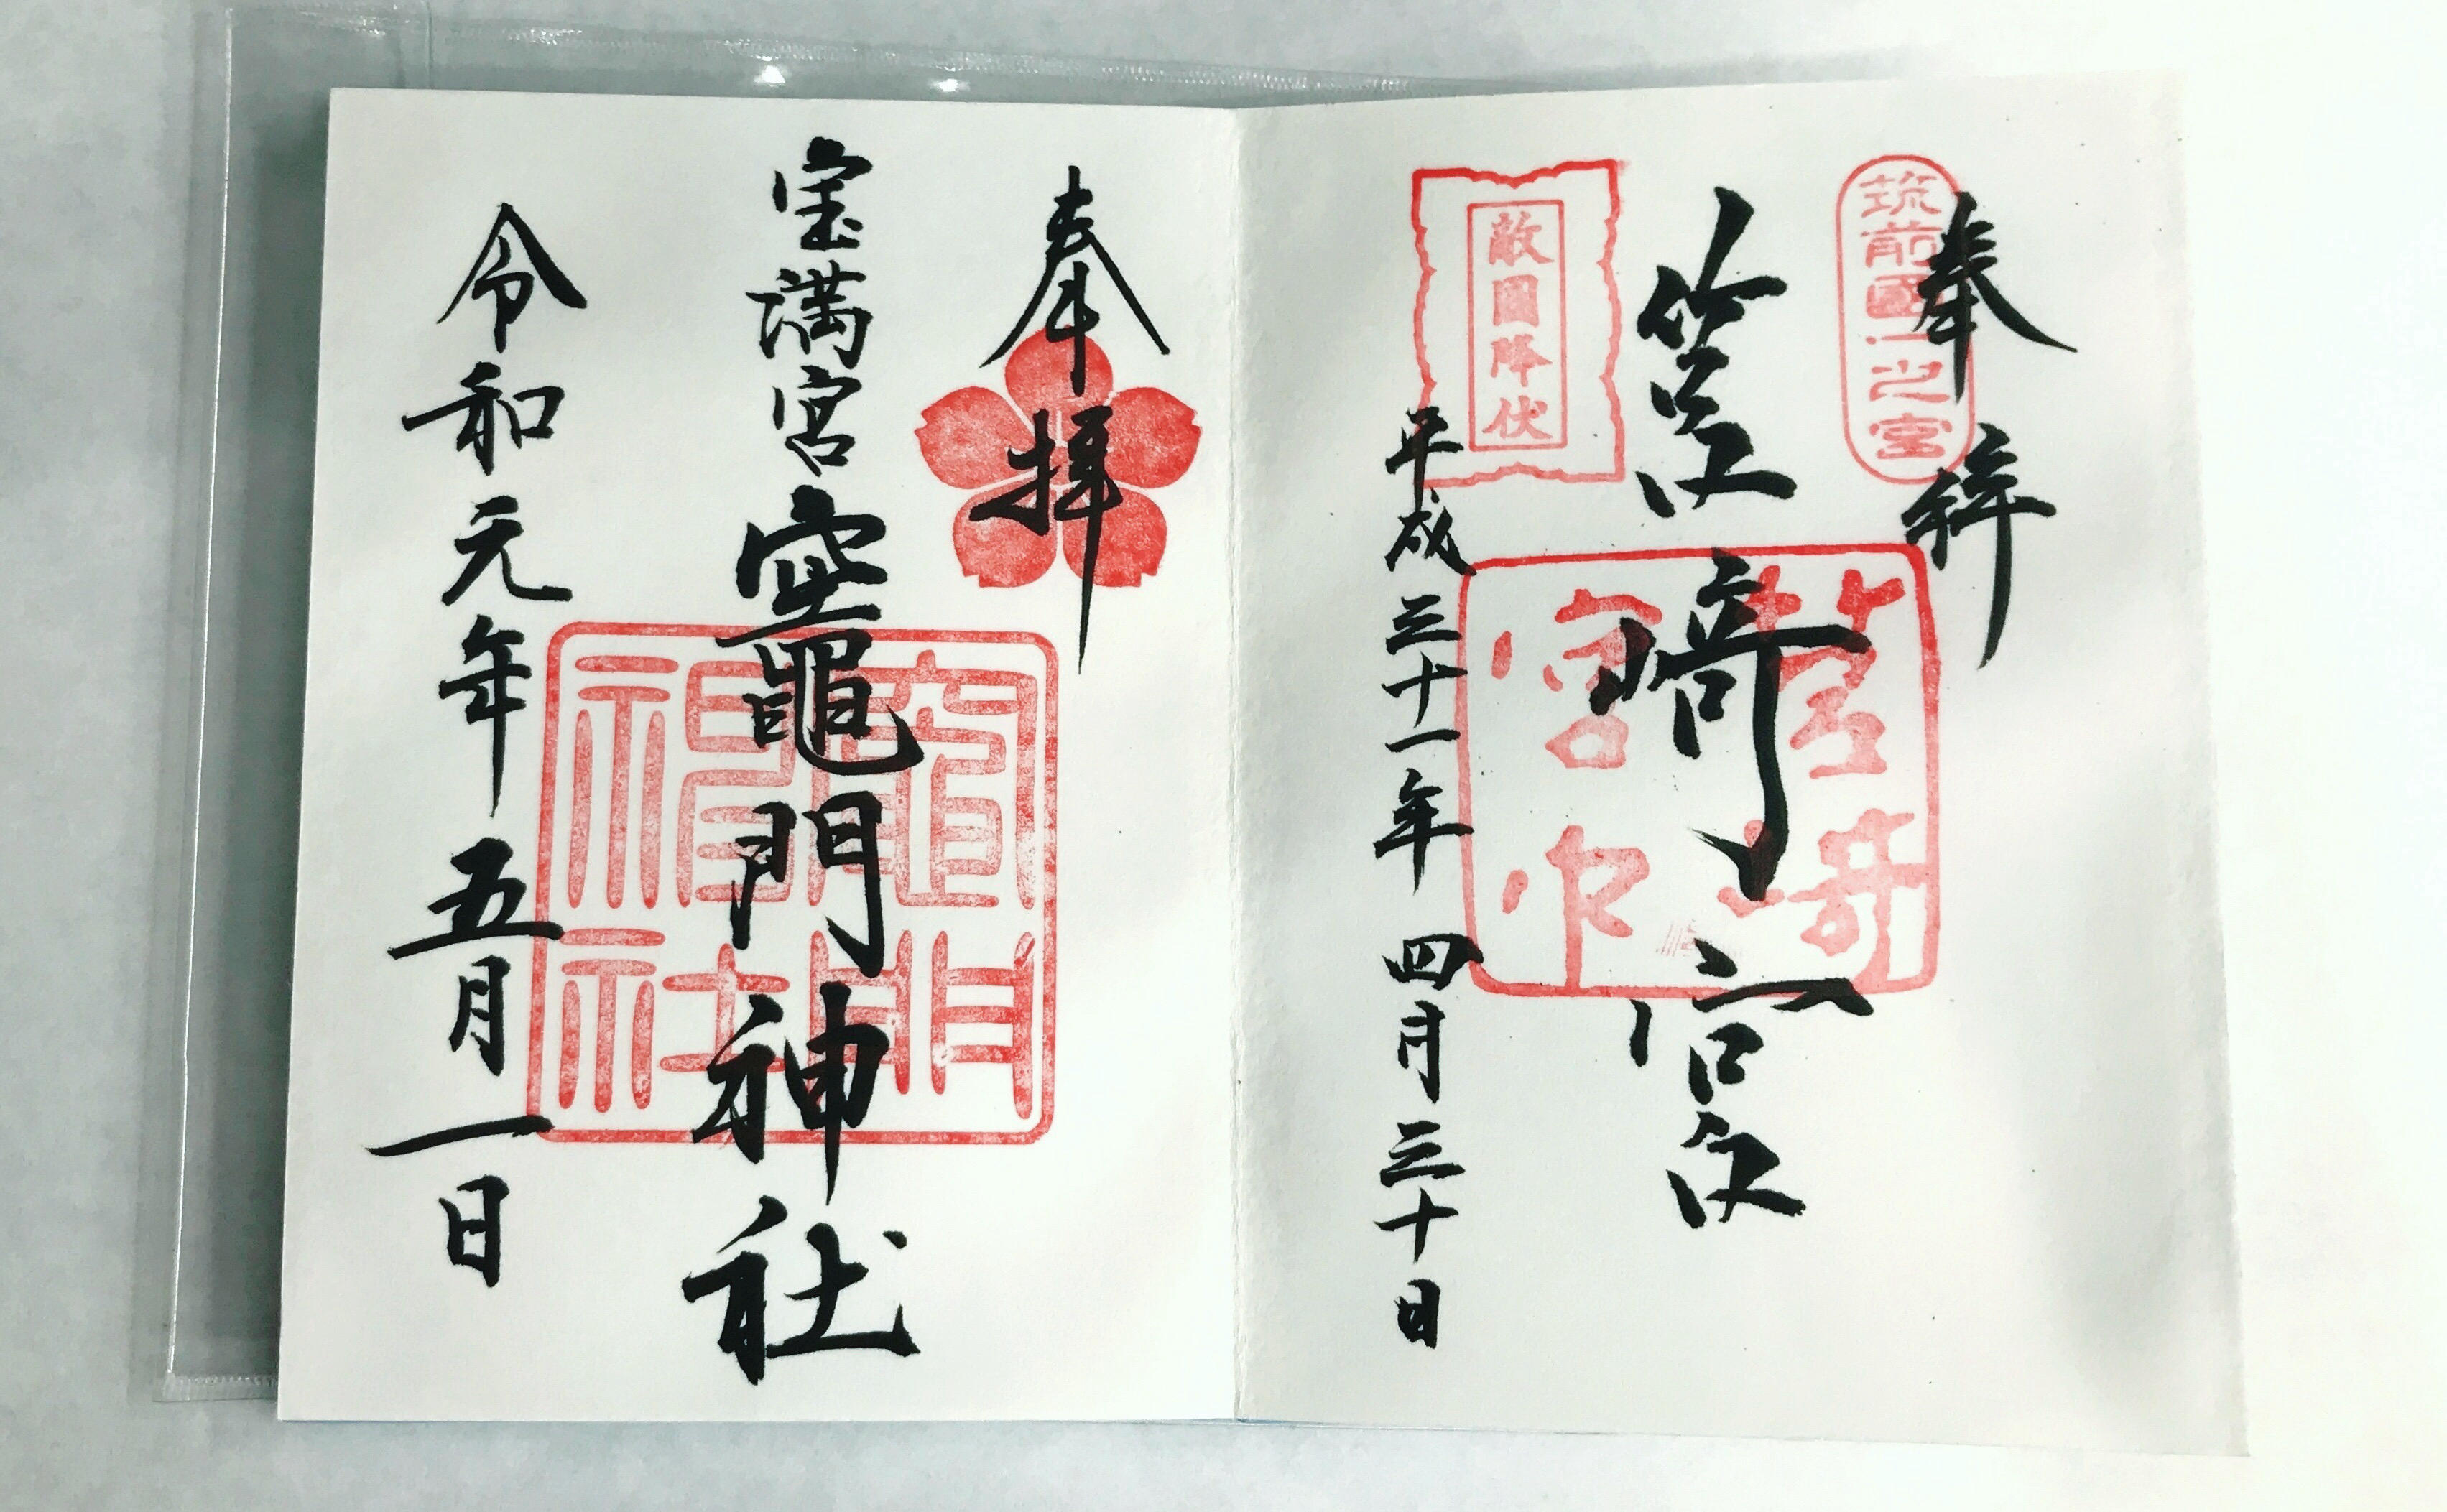 奉拝
筑前國一之宮
筥崎宮
筥崎宮印
敵國降伏
平成三十一年四月三十日
奉拝
宝満宮竈門神社
竈門神社
令和元年五月一日